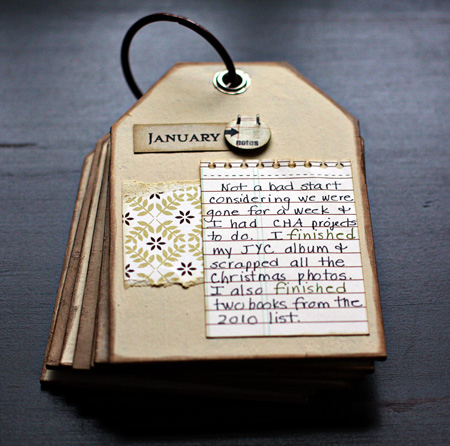 JANUARY
notes
Not a bad start
considering we were
gone for a week &
I had CHA projects
to do. I finished
my JYC album &
scrapped all the
Christmas photos.
I also finished
two books from the
2010 list.